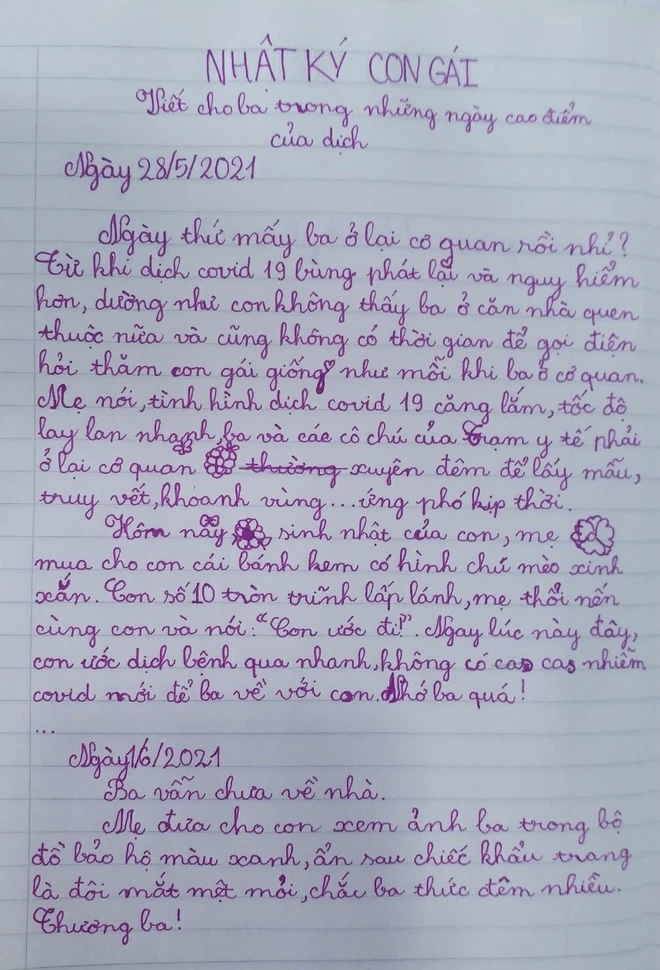 NHẬT KÝ CON GÁI
Viết cho ba trong những ngày cao điểm
của dịch
Ngày 28/5/2021
Ngày thứ mấy ba ở lại cơ quan rồi nhỉ?
Từ khi dịch covid 19 bùng phát lại và nguy hiểm
hơn, dường như con không thấy ba ở căn nhà quen
thuộc nữa và cũng không có thời gian để gọi điện
hỏi thăm con gái giống như mỗi khi ba ở cơ quan.
Mẹ nói, tình hình dịch covid 19 căng lắm, tốc độ
lay lan nhanh, ba và các cô chú của trạm y tế phải
ở lại cơ quan thường xuyên đêm để lấy mẫu,
truy vết, khoanh vùng...ứng phó kịp thời.
Hôm nay sinh nhật của con, mẹ
mua cho con cái bánh kem có hình chú mèo xinh
xắn. Con số 10 tròn trĩnh lấp lánh, mẹ thổi nến
cùng con và nói: "Con ước đi!". Ngay lúc này đây,
con ước dịch bệnh qua nhanh, không có cas nhiễm
covid mới để ba về với con. Nhớ ba quá!
...
Ngày 1/6/2021
Ba vẫn chưa về nhà.
Mẹ đưa cho con xem ảnh ba trong bộ
đồ bảo hộ màu xanh, ẩn sau chiếc khẩu trang
là đôi mắt mệt mỏi, chắc ba thức đêm nhiều.
Thương ba!